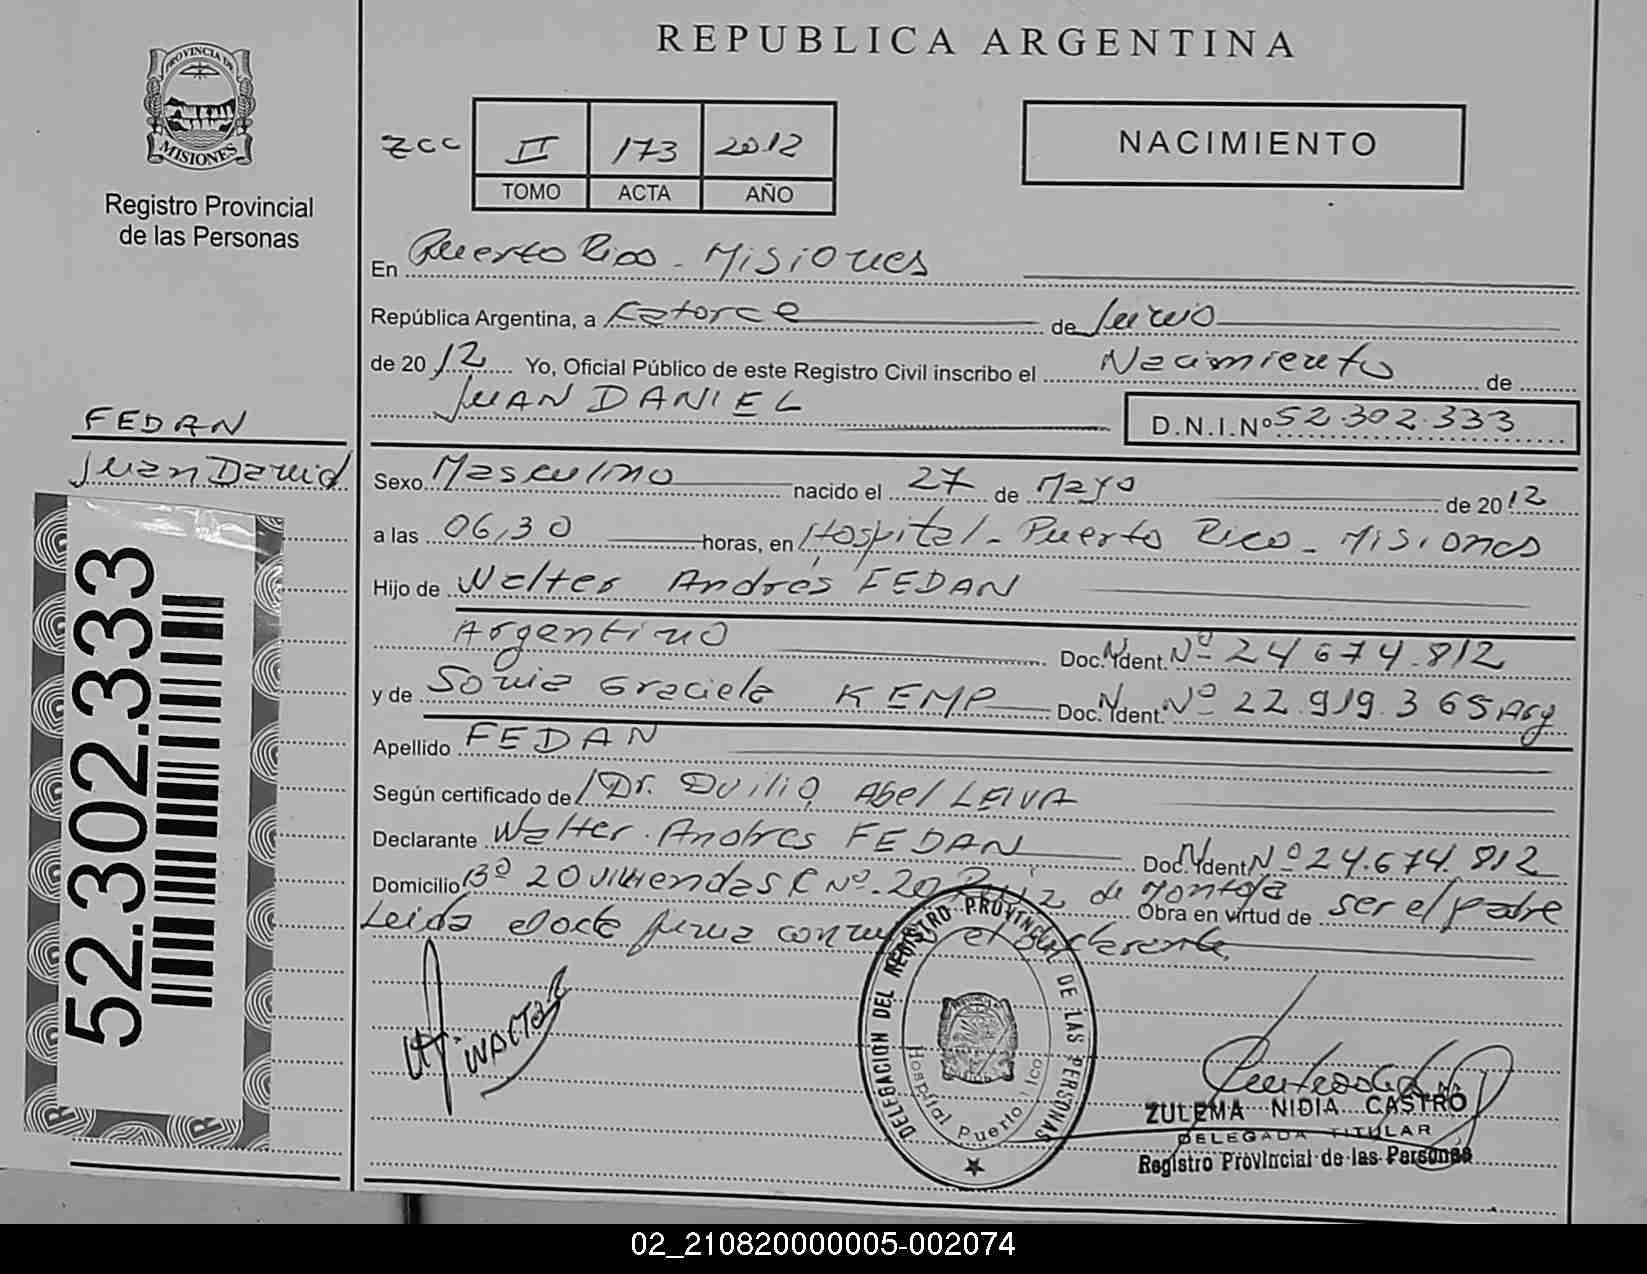 REPUBLICA ARGENTINA
PROVINCIA DE
MISIONES
Registro Provincial
de las Personas
zcc II 173 2012
TOMO ACTA AÑO
NACIMIENTO
En Puerto Rico - Misiones
República Argentina, a Catorce de Junio
de 2012 Yo, Oficial Público de este Registro Civil inscribo el Nacimiento de
JUAN DANIEL D.N.I.Nº 52.302.333
FEDAN
Juan Daniel
52.302.333
Sexo Masculino nacido el 27 de Mayo de 2012
a las 06,30 horas, en Hospital - Puerto Rico - Misiones
Hijo de Walter Andrés FEDAN
Argentino Doc. N Ident. Nº 24 674.812
y de Sonia Graciela KEMP Doc. N Ident. Nº 22 919 365 Arg
Apellido FEDAN
Según certificado de Dr. Duilio Abel LEIVA
Declarante Walter Andres FEDAN Doc. N Ident Nº 24.674.812
Domicilio Bº 20 viviendas C Nº 20 Ruiz de Montoya Obra en virtud de ser el padre
Leida el acta firma conmigo el declarante
Walter
DELEGACION DEL REGISTRO PROVINCIAL DE LAS PERSONAS
Hospital Puerto Rico
ZULEMA NIDIA CASTRO
DELEGADA TITULAR
Registro Provincial de las Personas
02_210820000005-002074